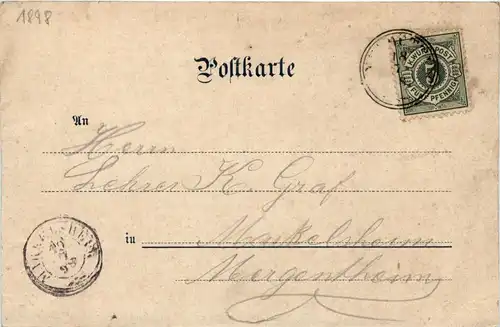 1898
Postkarte
K. WÜRTT. POST
FÜNF PFENNIG
5
An
Herrn
Lehrer K. Graf
in Markelsheim
Mergentheim
MARKELSHEIM